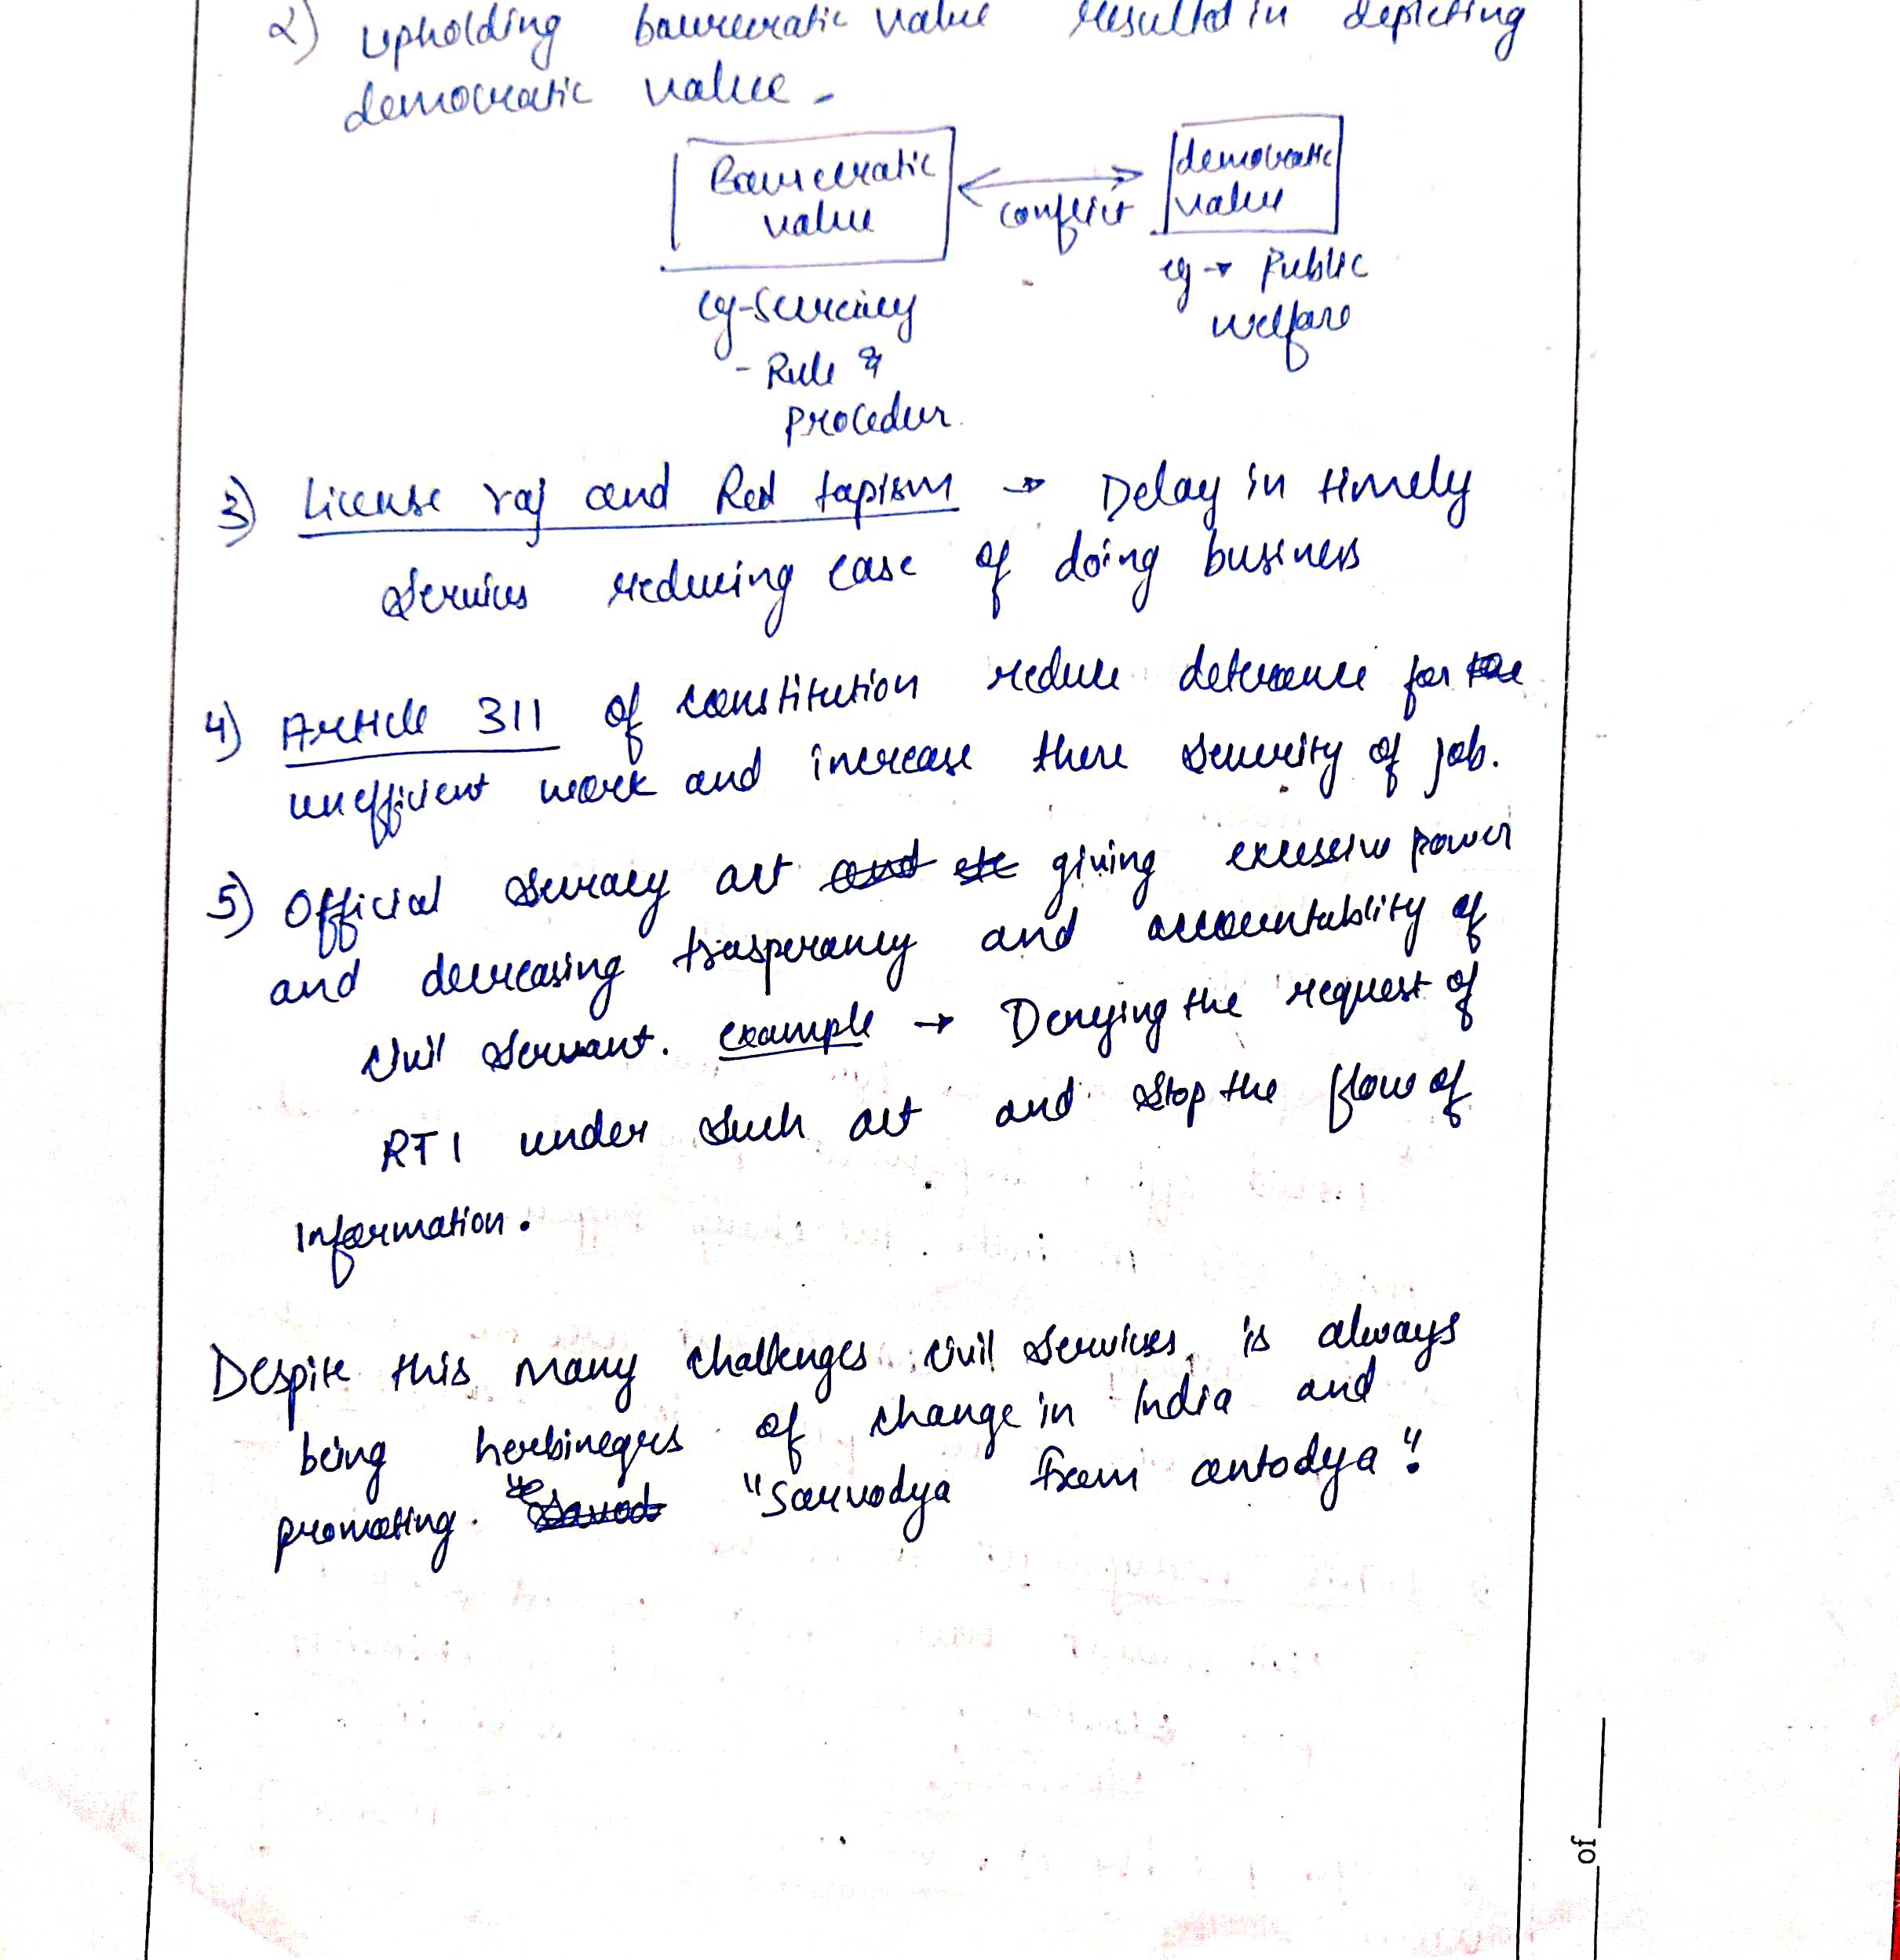 2) upholding baurecratic value resulted in depicting
democratic value.
Baurecratic
value
conflict
democratic
value
eg - Secrecy
- Rule &
procedur
eg → Public
welfare
3) License raj and Red tapism → Delay in timely
services reducing ease of doing business
4) Article 311 of constitution reduce deterance for the
unefficient work and increase there security of job.
5) Official secracy act and giving excessive power
and decreasing trasperancy and accountablity of
civil servant. example → Denying the request of
RTI under such act and stop the flow of
Information.
Despite this many challenges civil services is always
being herbinegers of change in India and
promoting. "Sarvodya from antodya".
of